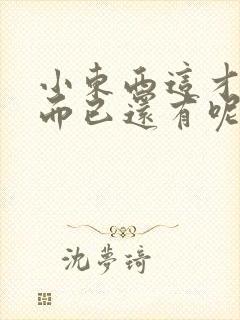 小東西這才
而已還有呢
沈夢琦